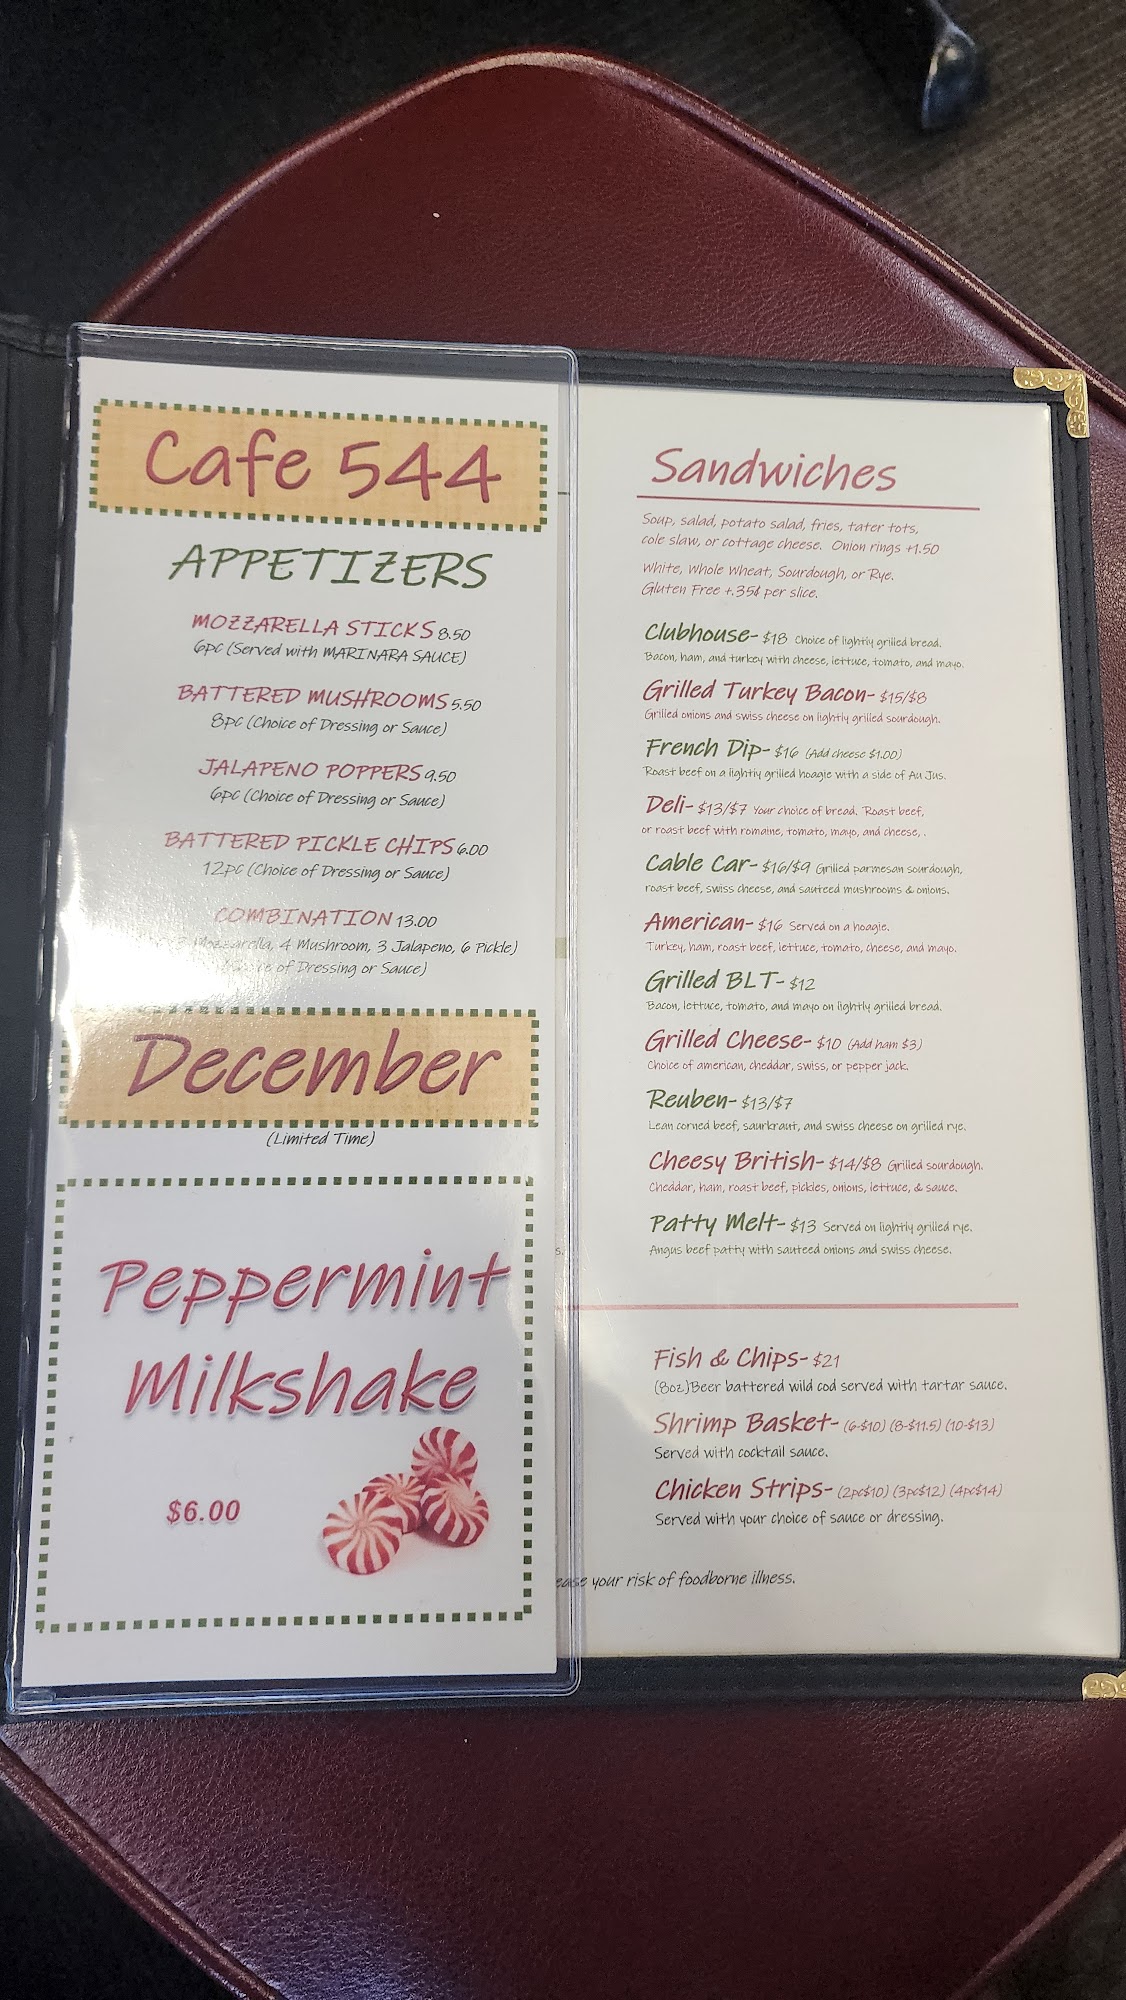 Cafe 544
APPETIZERS
MOZZARELLA STICKS 8.50
6pc (Served with MARINARA SAUCE)
BATTERED MUSHROOMS 5.50
8pc (Choice of Dressing or Sauce)
JALAPENO POPPERS 9.50
6pc (Choice of Dressing or Sauce)
BATTERED PICKLE CHIPS 6.00
12pc (Choice of Dressing or Sauce)
COMBINATION 13.00
Mozzarella, 4 Mushroom, 3 Jalapeno, 6 Pickle)
of Dressing or Sauce)
December
(Limited Time)
Peppermint
Milkshake
$6.00
Sandwiches
Soup, salad, potato salad, fries, tater tots,
cole slaw, or cottage cheese. Onion rings +1.50
White, Whole Wheat, Sourdough, or Rye.
Gluten Free +.35¢ per slice.
Clubhouse- $18 Choice of lightly grilled bread.
Bacon, ham, and turkey with cheese, lettuce, tomato, and mayo.
Grilled Turkey Bacon- $15/$8
Grilled onions and swiss cheese on lightly grilled sourdough.
French Dip- $16 (Add cheese $1.00)
Roast beef on a lightly grilled hoagie with a side of Au Jus.
Deli- $13/$7 Your choice of bread. Roast beef,
or roast beef with romaine, tomato, mayo, and cheese, .
Cable Car- $16/$9 Grilled parmesan sourdough,
roast beef, swiss cheese, and sauteed mushrooms & onions.
American- $16 Served on a hoagie.
Turkey, ham, roast beef, lettuce, tomato, cheese, and mayo.
Grilled BLT- $12
Bacon, lettuce, tomato, and mayo on lightly grilled bread.
Grilled Cheese- $10 (Add ham $3)
Choice of american, cheddar, swiss, or pepper jack.
Reuben- $13/$7
Lean corned beef, saurkraut, and swiss cheese on grilled rye.
Cheesy British- $14/$8 Grilled sourdough.
Cheddar, ham, roast beef, pickles, onions, lettuce, & sauce.
Patty Melt- $13 Served on lightly grilled rye.
Angus beef patty with sauteed onions and swiss cheese.
Fish & Chips- $21
(8oz)Beer battered wild cod served with tartar sauce.
Shrimp Basket- (6-$10) (8-$11.5) (10-$13)
Served with cocktail sauce.
Chicken Strips- (2pc$10) (3pc$12) (4pc$14)
Served with your choice of sauce or dressing.
your risk of foodborne illness.